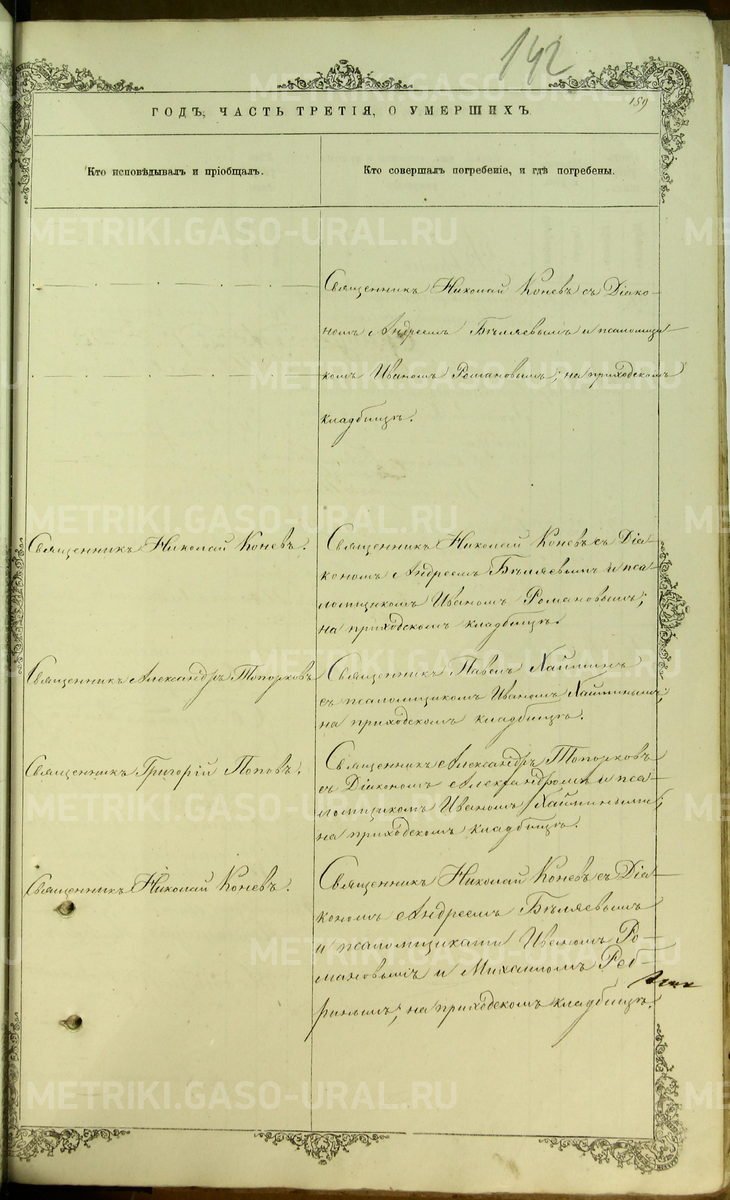 142
159
ГОДЪ, ЧАСТЬ ТРЕТІЯ, О УМЕРШИХЪ.
Кто исповѣдывалъ и пріобщалъ.
Кто совершалъ погребеніе, и гдѣ погребены.
Священникъ Николай Коневъ съ Діако-
номъ Андреемъ Бѣляевымъ и псаломщи-
комъ Иваномъ Романовымъ; на приходскомъ
кладбищѣ.
Священникъ Николай Коневъ.
Священникъ Николай Коневъ съ Діа-
кономъ Андреемъ Бѣляевымъ и пса-
ломщикомъ Иваномъ Романовымъ;
на приходскомъ кладбищѣ.
Священникъ Александръ Топорковъ
Священникъ Павелъ Хайминъ
съ псаломщикомъ Иваномъ Хайминымъ;
на приходскомъ кладбищѣ.
Священникъ Григорій Поповъ.
Священникъ Александръ Топорковъ
съ Діакономъ Александромъ и пса-
ломщикомъ Иваномъ Хаймиными;
на приходскомъ кладбищѣ.
Священникъ Николай Коневъ.
Священникъ Николай Коневъ съ Діа-
кономъ Андреемъ Бѣляевымъ
и псаломщиками Иваномъ Ро-
мановымъ и Михаиломъ
на приходскомъ кладбищѣ.
METRIKI.GASO-URAL.RU